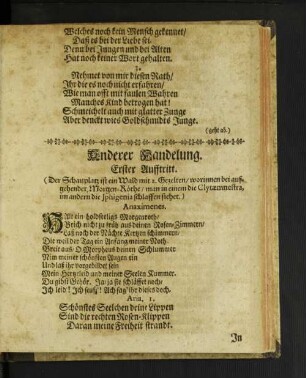 Welches noch kein Mensch gekennet/
Daß es bei der Liebe sei.
Denn bei Jungen und bei Alten
Hat noch keiner Wort gehalten.
3.
Nehmet von mir diesen Rath/
Ihr die es noch nicht erfahren/
Wie man offt mit faulen Wahren
Manches Kind betrogen hat!
Schmeichelt auch mit glatter Zunge
Aber denckt wies Goldschmidts Junge.
(geht ab.)
Anderer Handelung.
Erster Aufftritt.
(Der Schauplatz ist ein Wald mit 2. Gezelten/ worinnen bei auff-
gehender Morgen-Röthe/ man in einem die Clytæmnestra,
im andern die Iphigenia schlaffen siehet.)
Anaximenes.
ein holdseligs Morgenroth/
Brich nicht zu früh aus deinen Rosen-Zimmern/
Laß noch der Nächte Kertzen schimmern/
Die weil der Tag ein Anfang meiner Noth.
Breit aus O Morpheus deinen Schlummer
Nim meiner schönsten Augen ein
Und laß ihr vorgebildet sein
Mein Hertzleid und meiner Seelen Kummer.
Du gibst Gehör. Ja/ ja sie schläffet noch/
Ich leid! Ich seuff! Ach sag' ihr dieses doch.
Aria, 1.
Schönstes Seelchen deine Lippen
Sind die rechten Rosen-Klippen
Daran meine Freiheit strandt.
In